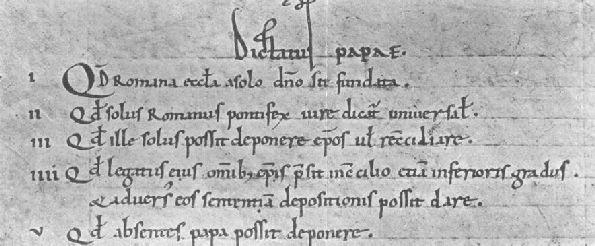 Dictatus papae.
i Qđ Romana eccła a solo dño sit fundata.
ii Qđ solus Romanus pontifex iure dicat̃ universał.
iii Qđ ille solus possit deponere ep̃os uł recc̃iliare.
iiii Qđ legatus eius om̃ibꝫ ep̃is p̃sit in c̃cilio etiã inferioris gradus.
& advers᷒ eos sententiã depositionis possit dare.
v Qđ absentes papa possit deponere.